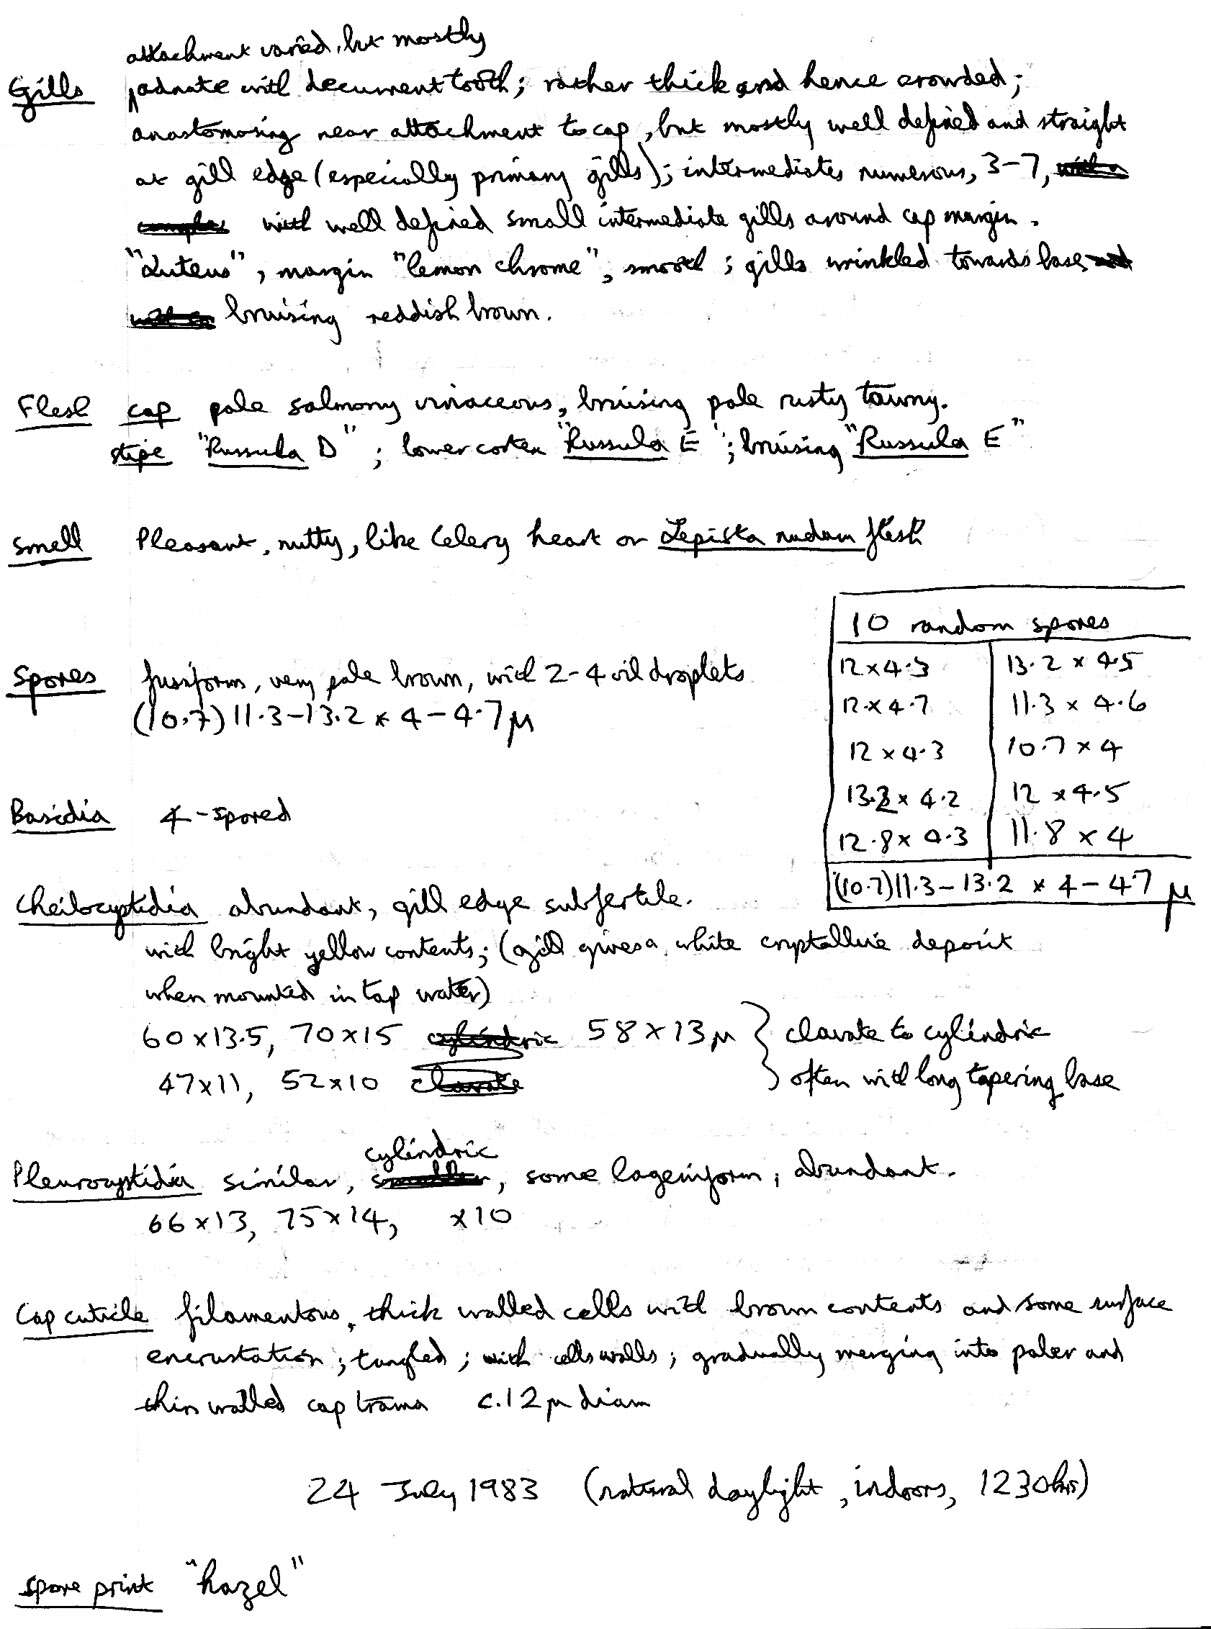 attachment varied, but mostly
Gills adnate with decurrent tooth; rather thick and hence crowded;
anastomosing near attachment to cap, but mostly well defined and straight
at gill edge (especially primary gills); intermediates numerous, 3-7,
with well defined small intermediate gills around cap margin.
"Luteus", margin "lemon chrome", smooth; gills wrinkled towards base
bruising reddish brown.
Flesh cap pale salmony vinaceous, bruising pale rusty tawny.
stipe "Russula D"; lower cortex "Russula E"; bruising "Russula E"
Smell Pleasant, nutty, like Celery heart or Lepista nuda flesh
10 random spores
12 x 4.3 13.2 x 4.5
12 x 4.7 11.3 x 4.6
12 x 4.3 10.7 x 4
13.2 x 4.2 12 x 4.5
12.8 x 4.3 11.8 x 4
(10.7) 11.3-13.2 x 4-4.7 μ
Spores fusiform, very pale brown, with 2-4 oil droplets
(10.7) 11.3-13.2 x 4-4.7 μ
Basidia 4-spored
Cheilocystidia abundant, gill edge subfertile.
with bright yellow contents; (gill gives a white crystalline deposit
when mounted in tap water)
60x13.5, 70x15 cylindric 58x13μ } clavate to cylindric
47x11, 52x10 clavate } often with long tapering base
cylindric
Pleurocystidia similar, smaller, some lageniform, abundant.
66x13, 75x14, x10
Cap cuticle filamentous, thick walled cells with brown contents and some surface
encrustation; tangled; with cells walls; gradually merging into paler and
thin walled cap trama c.12μ diam
24 July 1983 (natural daylight, indoors, 1230hrs)
Spore print "hazel"